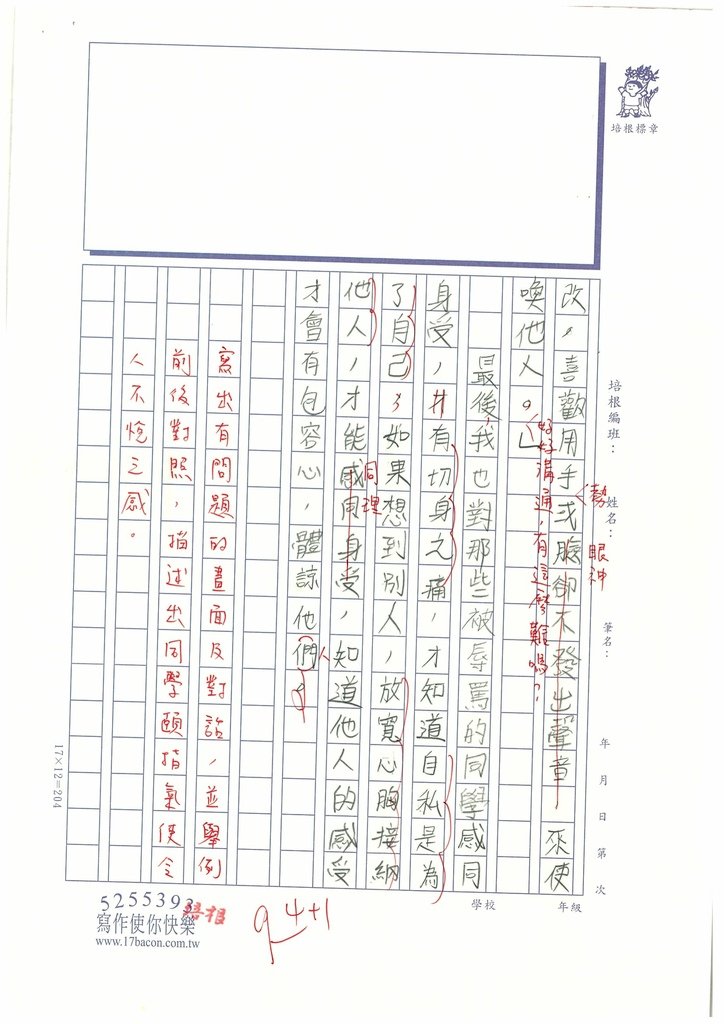 培根標章
培根編班：
姓名：
筆名：
年 月 日 第 次
改，喜歡用手或臉卻不發出聲音 來使
勢
眼神
喚他人。
好好溝通，有這麼難嗎？
最後，我也對那些被辱罵的同學感同
身受，有切身之痛，才知道自私是為
了自己，如果想到別人，放寬心胸接納
他人，才能感同身受，知道他人的感受
同理
才會有包容心，體諒他們。
人
寫出有問題的畫面及對話，並舉例
前後對照，描述出同學頤指氣使令
人不悅之感。
17×12=204
學校
年級
5255393
培根
寫作使你快樂
www.17bacon.com.tw
9 4+1